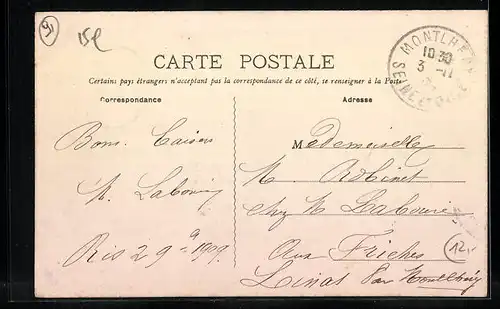 91
15e
CARTE POSTALE
Certains pays étrangers n'acceptant pas la correspondance de ce côté, se renseigner à la Poste
Correspondance
Adresse
MONTLHÉRY
10 30
3 -11
SEINE ET OISE
Bons Baisers
Mademoiselle
M. Robinet
chez M Labourie
Ris 2 9e 1909
Aux Friches
Linas par Montlhéry
12